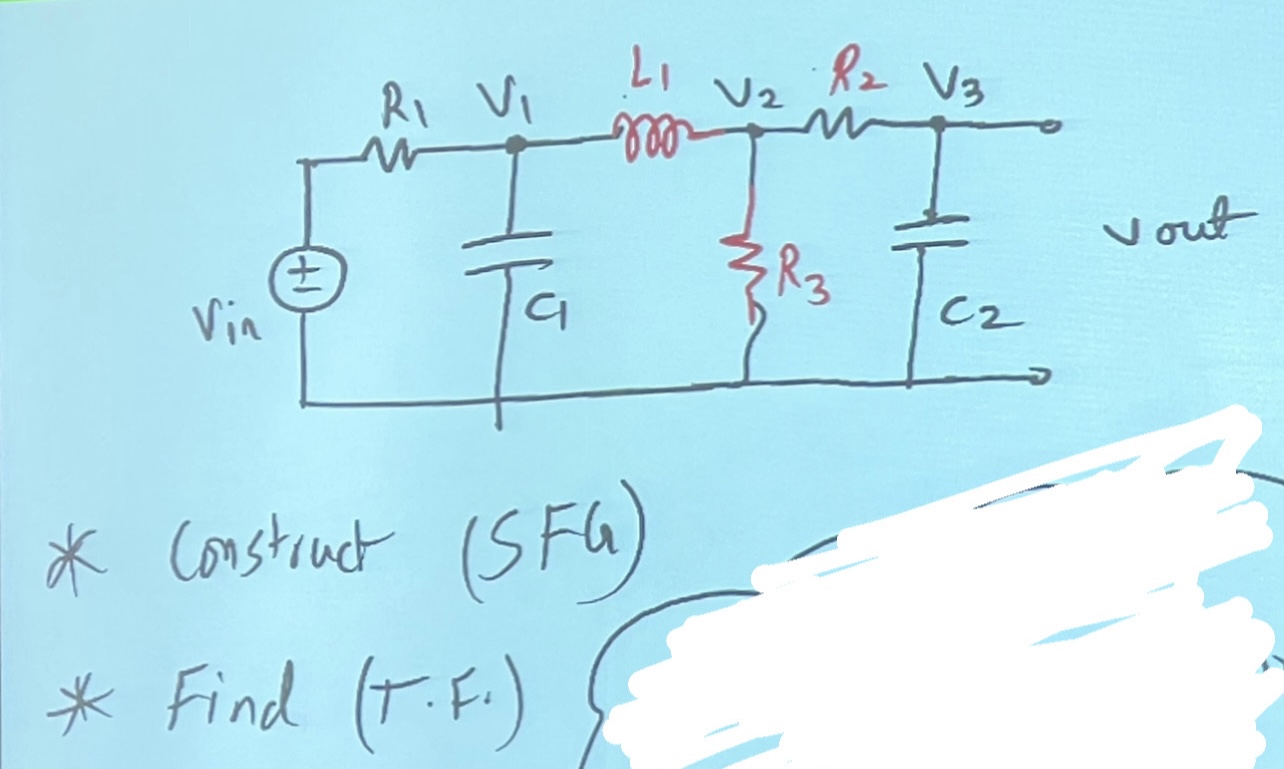 R1 V1 L1 V2 R2 V3
Vin + - C1 R3 C2 Vout
* Construct (SFG)
* Find (T.F.)